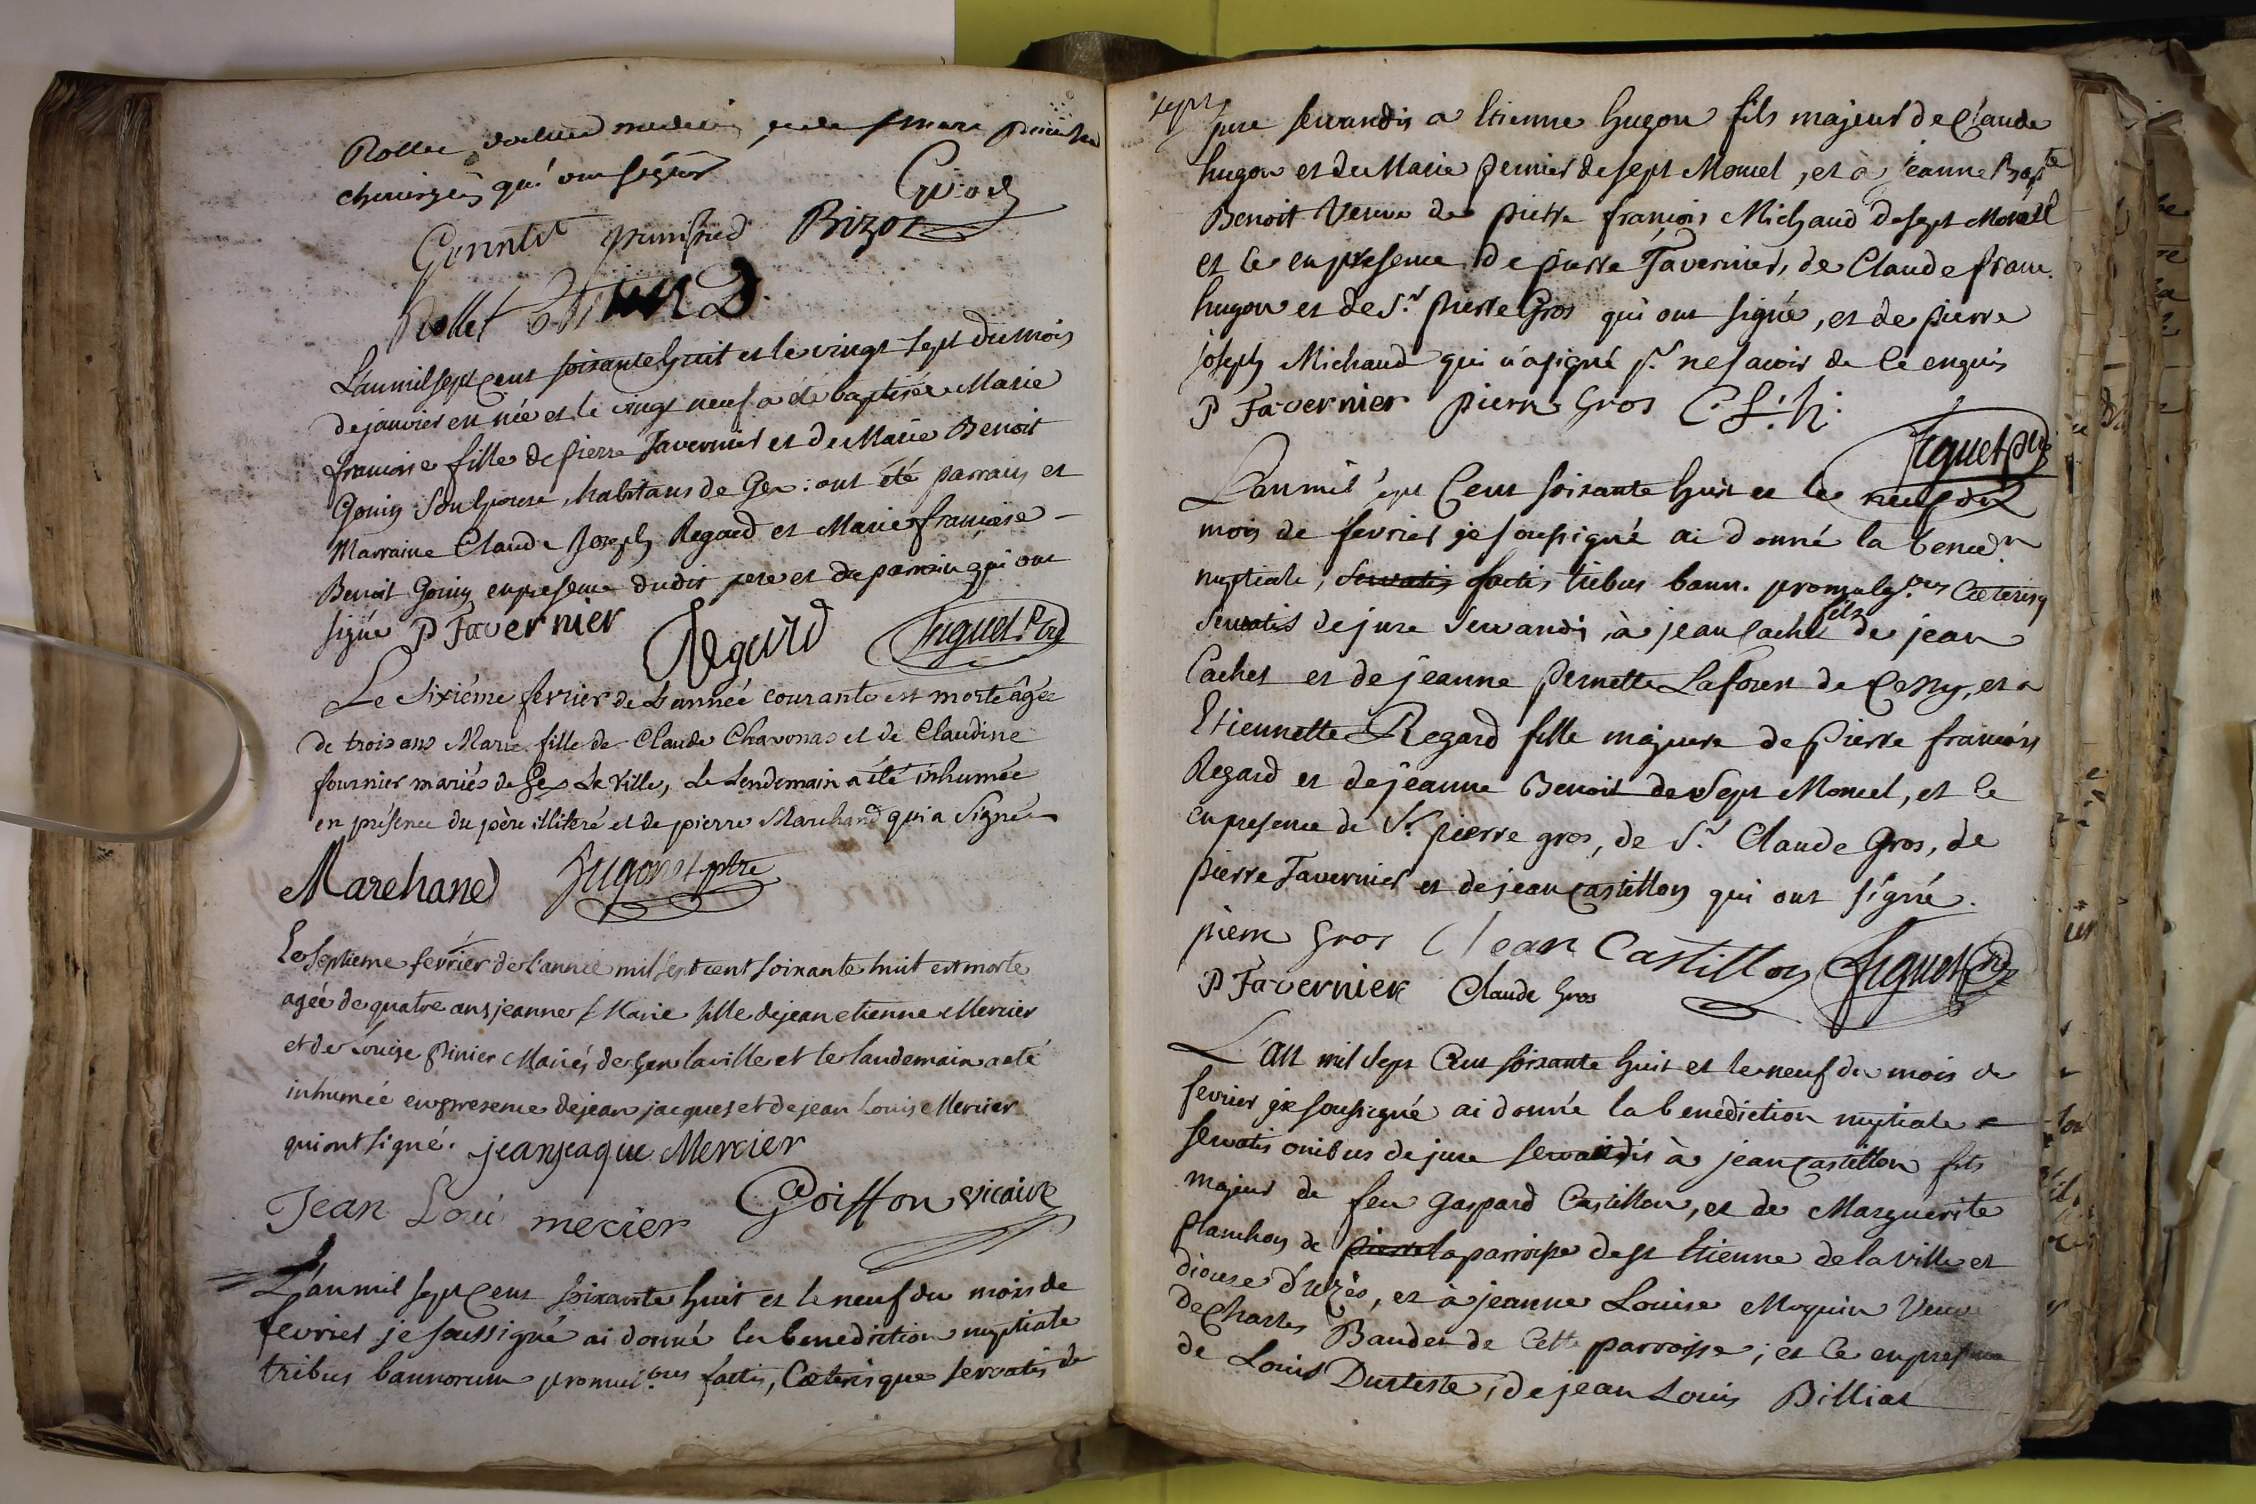 Rollet docteur medecin
chirurgien qui ont signés
Guiod
Bizot
Rollet
L'an mil sept cent soixante huit et le vingt sept du mois
de janvier est née et le vingt neuf a été baptisée Marie
francoise fille de pierre Tavernier et de Marie Benoit
Gonin son epouse, habitans de Gex : ont été parrain et
Marraine Claude Joseph Regard et Marie françoise
Benoit Gonin en presence dudit pere et du parrain qui ont
signé P Tavernier Regard
Le Sixiéme fevrier de L'année courante est morte âgée
de trois ans Marie fille de Claude Chavonas et de Claudine
fournier mariés de Gex La Ville, Le Lendemain a été inhumée
en présence du père illitéré et de pierre Marchand qui a Signé
Marchand
Le septieme fevrier de l'année mil sept cent soixante huit est morte
agée de quatre ans jeanne Marie fille de jean etienne Mercier
et de Louise pinier Mariés de Gex la ville et le landemain a eté
inhumée en presence de jean jacques et de jean Louis Mercier
qui ont signé. jean jaque Mercier
Jean Loui mecier Goiffon vicaire
L'an mil sept cent soixante huit et le neuf du mois de
fevrier je soussigné ai donné la benediction nuptiale
tribus bannorum promul.bus factis, Cæterisque servatis de
jure servandis a Etienne hugon fils majeur de Claude
hugon et de Marie pernier de sept Moncel, et à jeanne Bapte
Benoit Veuve de pierre françois Michaud de sept Moncel
et ce en presence de pierre Tavernier, de Claude franc.
hugon et de Sr. pierre Gros qui ont signé, et de pierre
joseph Michaud qui n'a signé pr. ne savoir de ce enquis
P Tavernier pierre Gros C. f. h.
L'an mil sept Cent soixante huit et le neuf du
mois de fevrier je soussigné ai donné la bened.n
nuptiale, servatis factis tribus bann. promulg.bus Cæterisq
Servatis de jure Servandis, à jean Cachet fils de jean
Cachet et de jeanne pernette Laforest de Cessy, et a
Etiennette Regard fille majeure de Pierre francois
Regard et de jeanne Benoit de Sept Moncel, et ce
en presence de Sr. pierre gros, de Sr. Claude Gros, de
pierre Tavernier et de jean Castillon qui ont signé.
pierre Gros Jean Castillon
P Tavernier Claude Gros
L'an mil Sept Cent soixante huit et le neuf du mois de
fevrier je soussigné ai donné la benediction nuptiale
servatis onibus de jure servandis à jean Castillon fils
majeur de feu Gaspard Castillon, et de Marguerite
planchon de pierre la parroisse de st Etienne de la ville et
diocese d'uzès, et à jeanne Louise Moquin Veuve
de Charles Baudet de Cette parroisse; et ce en presence
de Louis Dusteste, de jean Louis Billiat